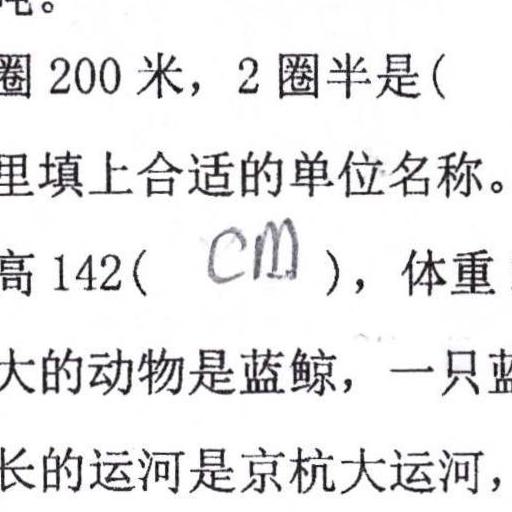 圈 200 米，2 圈半是(
里填上合适的单位名称。
高 142( cm )，体重
大的动物是蓝鲸，一只蓝
长的运河是京杭大运河，